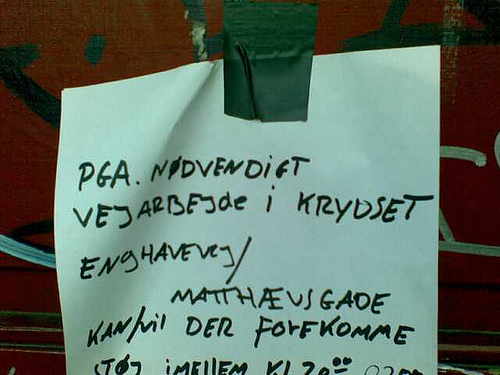 PGA. NØDVENDIGT
VEJARBEJDE i KRYDSET
ENGHAVEVEJ/
MATTHÆUSGADE
KAN/Vil DER FOREKOMME
STØJ iMELLEM Kl 20 00